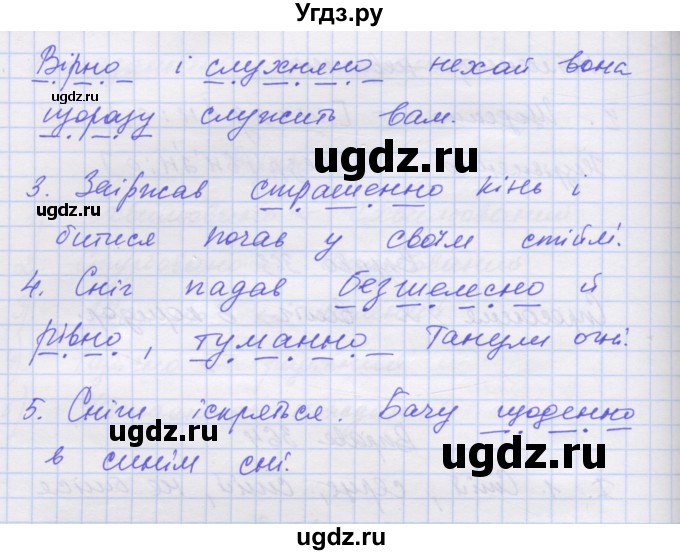 Угдз.ру
Вірно і слухняно нехай вона
ugdz.ru
ugdz.ru
щоразу служить вам.
ugdz.ru
3. Заіржав страшенно кінь і
ugdz.ru
битися почав у своїм стійлі.
ugdz.ru
4. Сніг падав безшелесно й
рівно, туманно танули огні.
ugdz.ru
5. Сніги іскряться. Бачу щоденно
ugdz.ru
ugdz.ru
в синім сні.
ugdz.ru
ugdz.ru